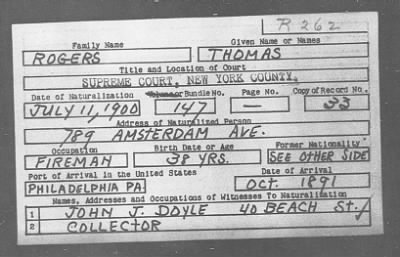 R 262
Family Name Given Name or Names
ROGERS THOMAS
Title and Location of Court
SUPREME COURT, NEW YORK COUNTY,
Date of Naturalization Bundle No. Page No. Copy of Record No.
JULY 11, 1900 147 — 33
Address of Naturalized Person
789 AMSTERDAM AVE.
Occupation Birth Date or Age Former Nationality
FIREMAN 38 YRS. SEE OTHER SIDE
Port of Arrival in the United States Date of Arrival
PHILADELPHIA PA. OCT. 1891
Names, Addresses and Occupations of Witnesses To Naturalization
1 JOHN J. DOYLE 40 BEACH St.
2 COLLECTOR